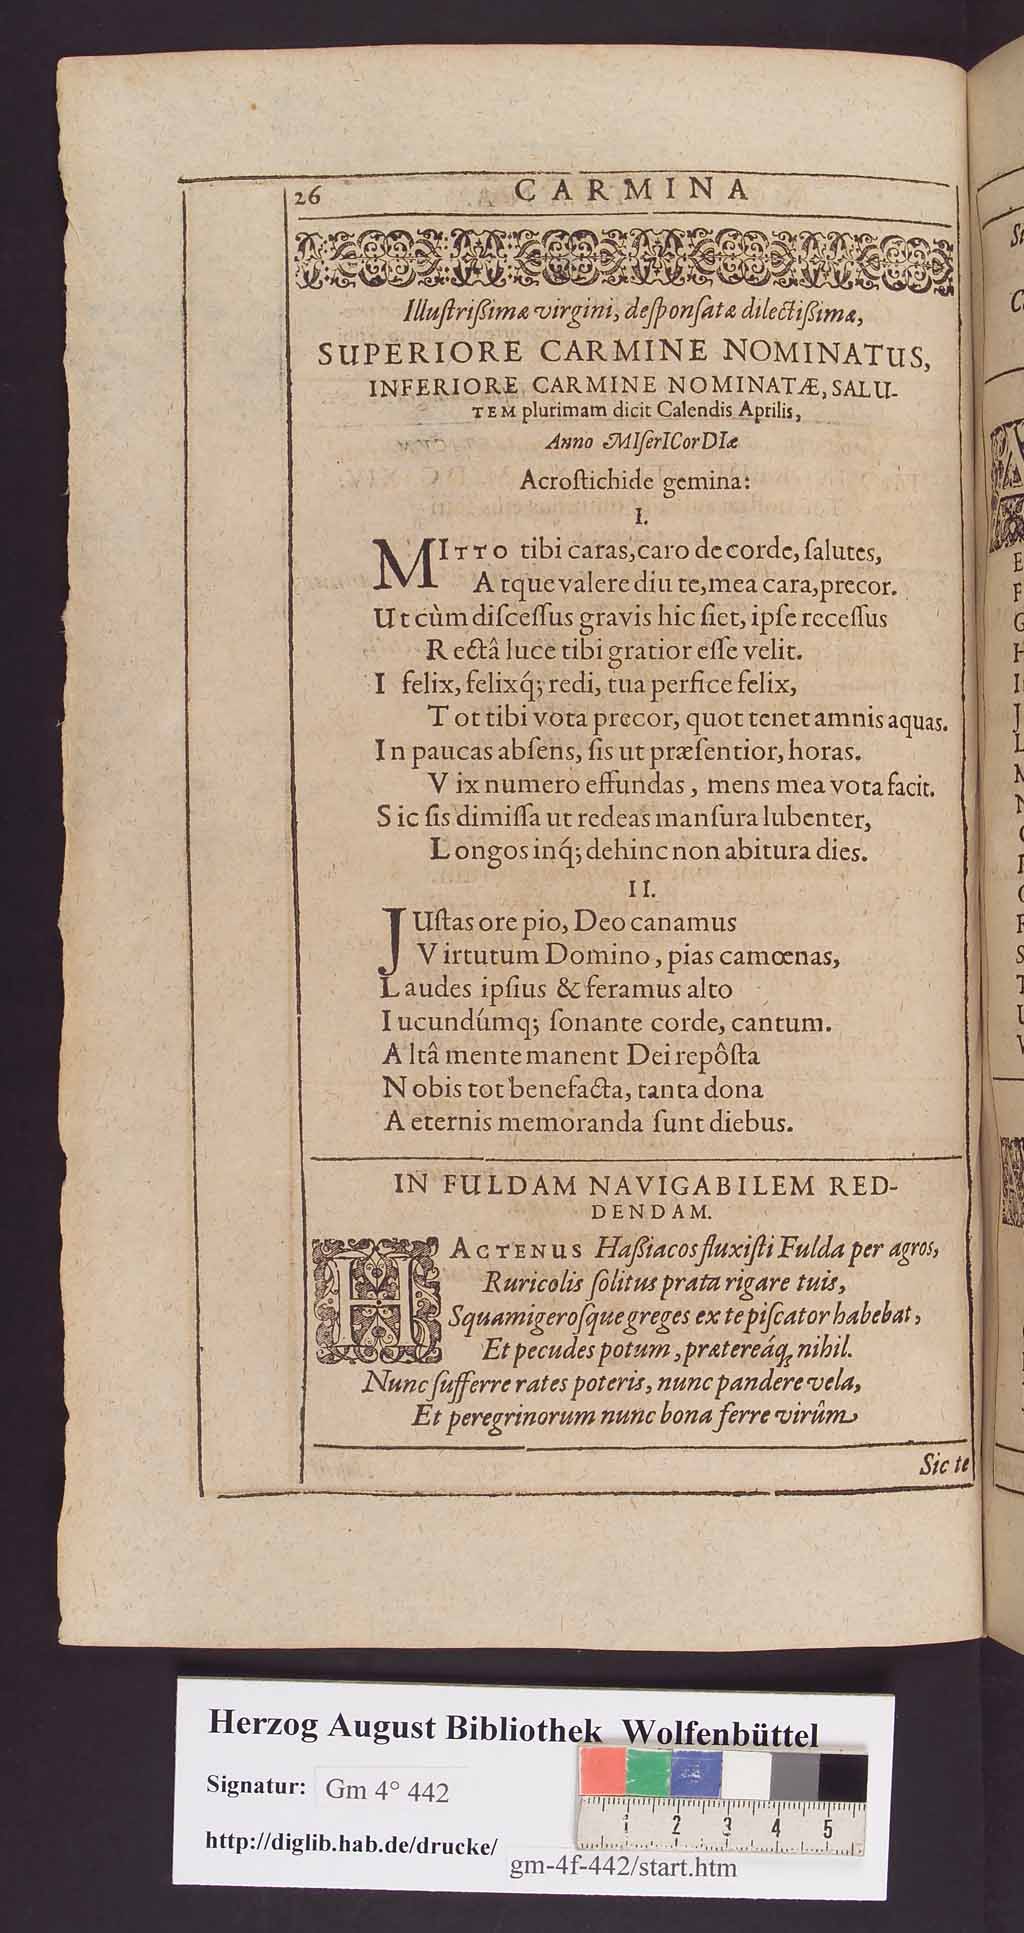 26 CARMINA
Illuſtriſsimæ virgini, deſponſatæ dilectiſsimæ,
SUPERIORE CARMINE NOMINATUS,
INFERIORE CARMINE NOMINATÆ, SALU-
TEM plurimam dicit Calendis Aprilis,
Anno MIſerICorDIæ
Acroſtichide gemina:
I.
MITTO tibi caras, caro de corde, ſalutes,
Atque valere diu te, mea cara, precor.
Ut cùm diſceſſus gravis hic ſiet, ipſe receſſus
Rectâ luce tibi gratior eſſe velit.
I felix, felixq́; redi, tua perfice felix,
Tot tibi vota precor, quot tenet amnis aquas.
In paucas abſens, ſis ut præſentior, horas.
Vix numero effundas, mens mea vota facit.
Sic ſis dimiſſa ut redeas manſura lubenter,
Longos inq́; dehinc non abitura dies.
II.
JUſtas ore pio, Deo canamus
Virtutum Domino, pias camœnas,
Laudes ipſius & feramus alto
Iucundúmq; ſonante corde, cantum.
Altâ mente manent Dei repôſta
Nobis tot benefacta, tanta dona
Aeternis memoranda ſunt diebus.
IN FULDAM NAVIGABILEM RED-
DENDAM.
HACTENUS Haſsiacos fluxiſti Fulda per agros,
Ruricolis ſolitus prata rigare tuis,
Squamigeroſque greges ex te piſcator habebat,
Et pecudes potum, prætereáq; nihil.
Nunc ſufferre rates poteris, nunc pandere vela,
Et peregrinorum nunc bona ferre virûm
Sic te
Herzog August Bibliothek Wolfenbüttel
Signatur: Gm 4° 442
http://diglib.hab.de/drucke/
gm-4f-442/start.htm
1 2 3 4 5